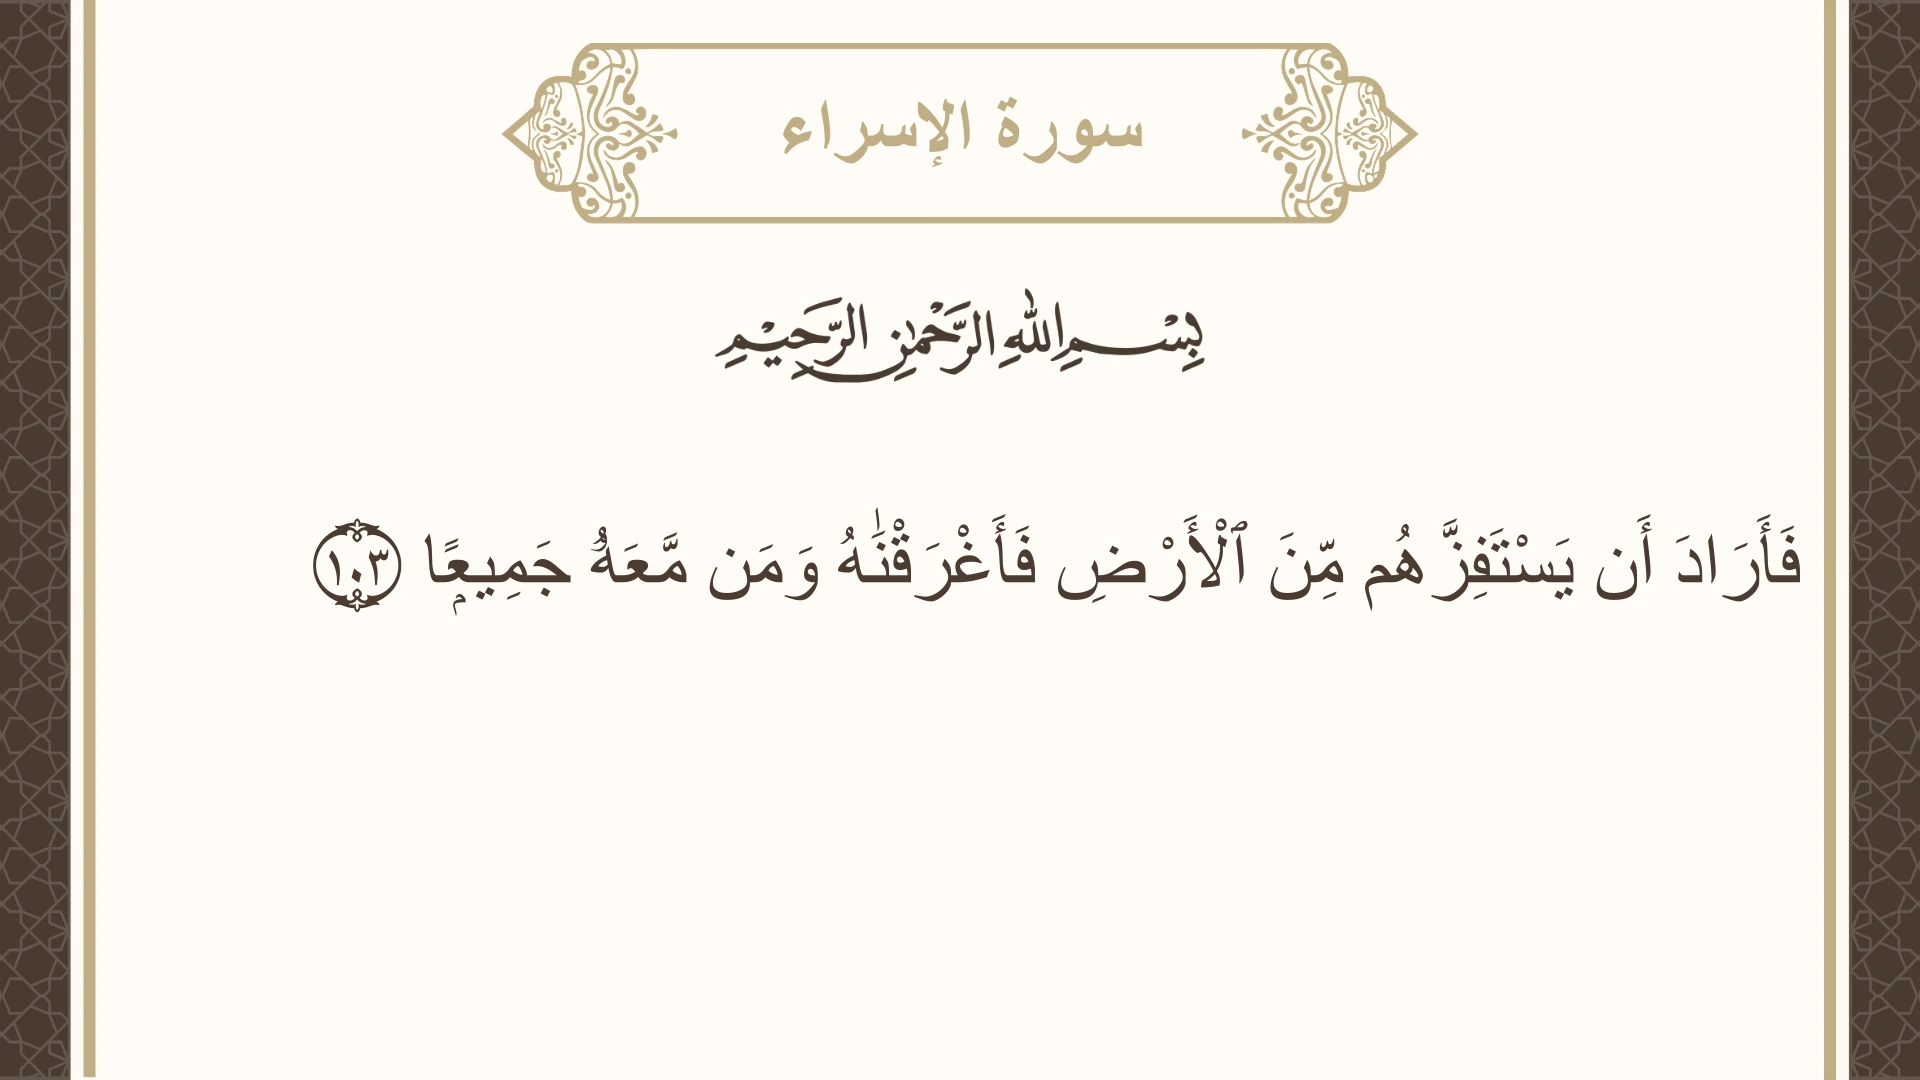 سورة الإسراء
بِسْمِ اللهِ الرَّحْمٰنِ الرَّحِيْمِ
فَأَرَادَ أَن يَسْتَفِزَّهُم مِّنَ ٱلْأَرْضِ فَأَغْرَقْنَٰهُ وَمَن مَّعَهُۥ جَمِيعًۭا ١٠٣